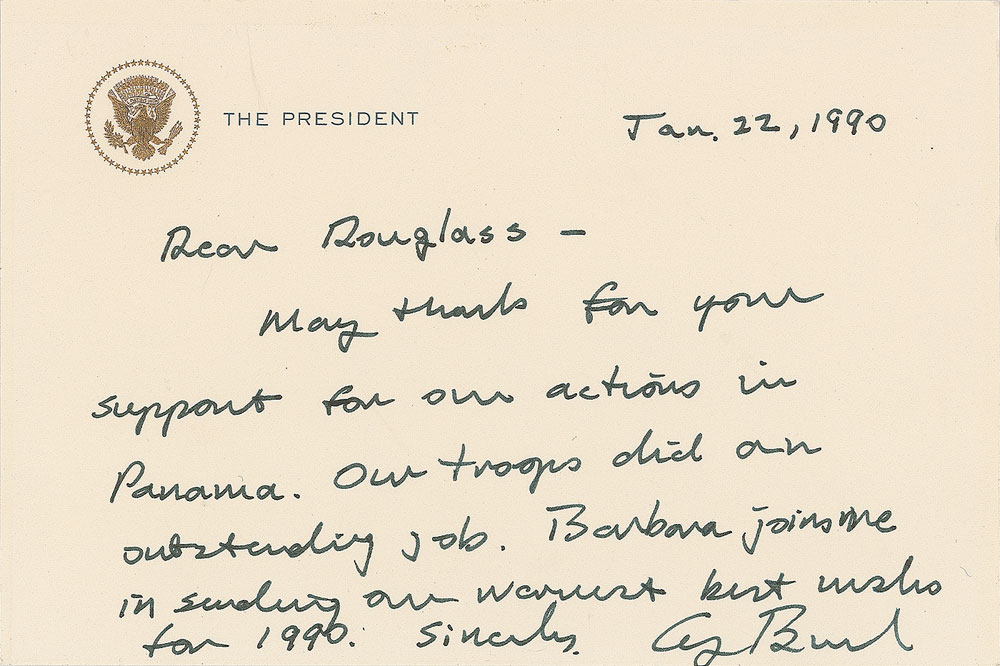 THE PRESIDENT
Jan. 22, 1990
Dear Douglass –
May thanks for your
support for our actions in
Panama. Our troops did an
outstanding job. Barbara joins me
in sending our warmest best wishes
for 1990. Sincerely, Gg Bush